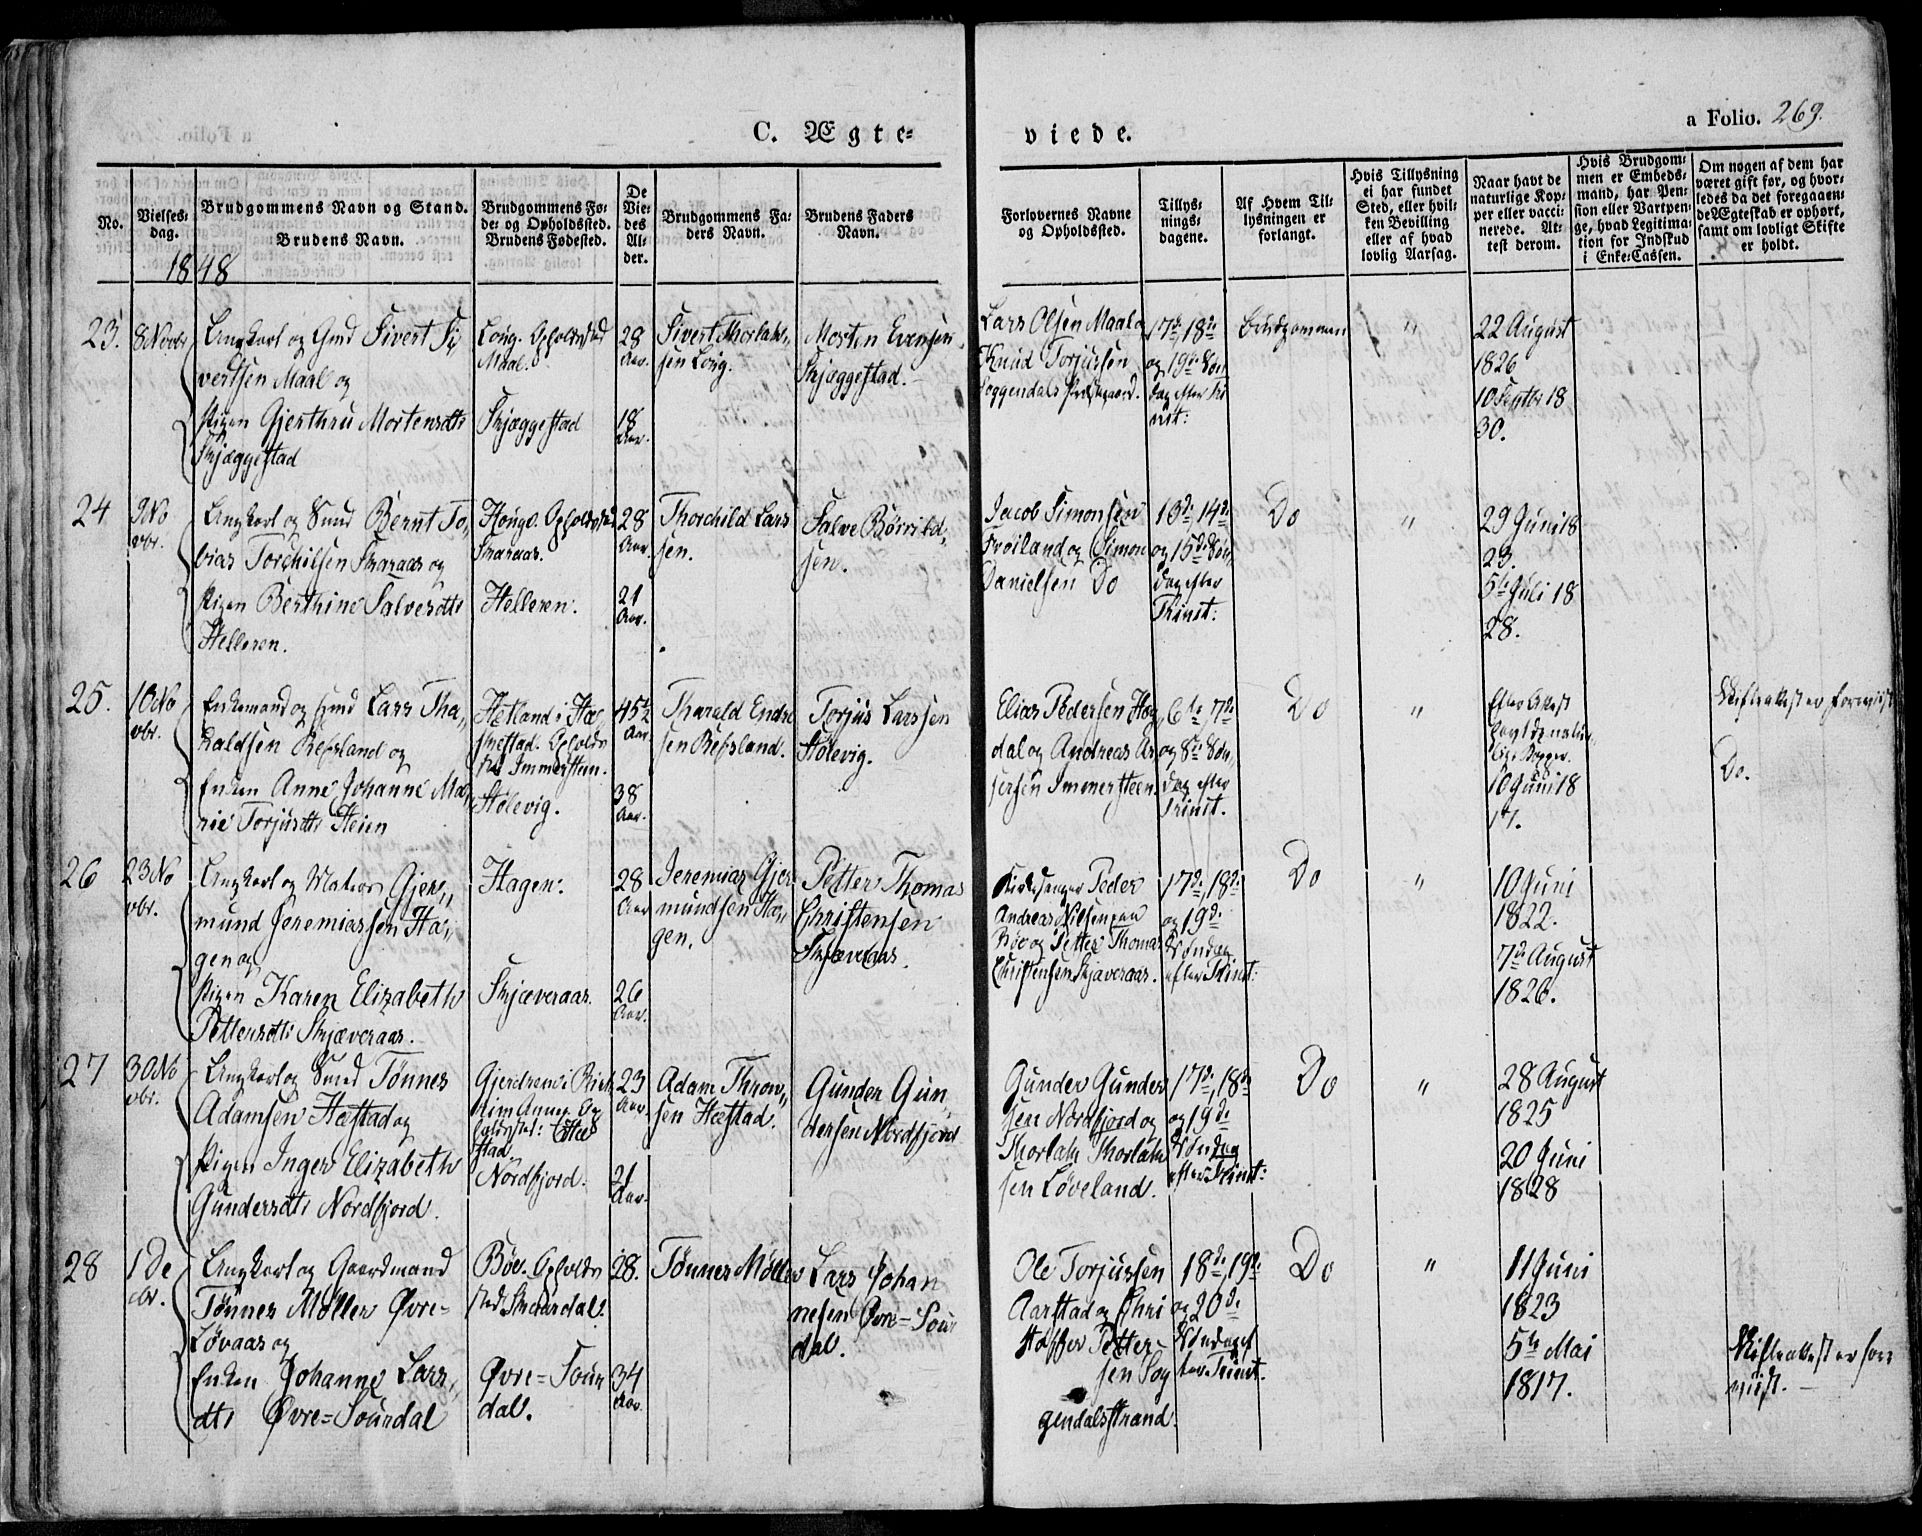 C. Ægte-
viede.
a Folio. 269.
No.
Vielses-
dag.
Brudgommens Navn og Stand.
Brudens Navn.
Brudgommens Fø-
de- og Opholdssted.
Brudens Fødested.
De
Vie-
des
Al-
der.
Brudgommens Fa-
ders Navn.
Brudens Faders
Navn.
Forlovernes Navne
og Opholdssted.
Tillys-
nings-
dagene.
Af Hvem Til-
lysningen er
forlangt.
Hvis Tillysning
ei har fundet
Sted, eller hvil-
ken Bevilling
eller af hvad
lovlig Aarsag.
Naar havt de
naturlige Kop-
per eller vacci-
nerede. At-
test derom.
Hvis Brudgom-
men er Embeds-
mand, har Pen-
sion eller Vartpen-
ge, hvad Legitima-
tion for Indskud
i Enke-Cassen.
Om nogen af dem har
været gift før, og hvor-
ledes da det foregaaen-
de Ægteskab er ophørt,
samt om lovligt Skifte
er holdt.
1848
23.
8 Novbr
Ungkarl og Gmd Sivert Si„
vertsen Maal og
Pigen Gjerthru Mortensdtr
Skjæggestad
Long. Opholdsstad
Maal.
Skjæggestad
28
Aar.
18
Aar.
Sivert Thorlak„
sen Long.
Morten Evensen
Skjæggestad.
Lars Olsen Maal og
Knud Torjussen
Soggendals Præstegaard.
17de 18de
og 19de Søn
dag efter Tri
nit:
Brudgommen
"
22 August
1826
10 Septbr 18
30.
24
9 No
vbr.
Ungkarl og Smd Bernt To„
bias Torchilsen Skaraas og
Pigen Berthine Salvesdtr
Helleren.
Houge. Opholdssted
Skaraas.
Helleren.
28
Aar.
21
Aar.
Thorchild Lars
sen.
Salve Børrild„
sen.
Jacob Simonsen
Frøiland og Simon
Danielsen Do
13de 14de
og 15de Søn
dag efter
Trinit:
Do
"
29 Juni 18
23.
5te Juli 18
28.
25.
10 No
vbr.
Enkemand og Smd Lars Tha„
raldsen Refsland og
Enken Anne Johanne Ma„
rie Torjusdtr Heien
Hetland i Hæ
skestad. Opholds
sted Immersteen.
Stølevig.
45½
Aar
38
Aar.
Tharald Endre
sen Refsland.
Torjus Larssen
Stølevig.
Elias Pedersen Hog
dal og Andreas As
sersen Immersteen.
6te 7de
og 8de Søn
dag efter
Trinit.
Do
"
Efter Attest
havt de natur
lige Kopper.
10 Juni 18
17.
Skifteattest er foreviist
Do.
26
23 No
vbr.
Ungkarl og Matros Gjer„
mund Jeremiassen Ha„
gen og
Pigen Karen Elizabeth
Pettersdtr Skjæveraas.
Hagen.
Skjæveraas.
28
Aar
26
Aar.
Jeremias Gjer
mundsen Ha„
gen.
Petter Thomas
Christensen
Skjæveraas.
Kirkesanger Peder
Andreas Nilsen paa
Bøe og Petter Thomas
Christensen Skjæveraas.
17de, 18de
og 19de
Søndag
efter Trinit:
Do
"
10 Juni
1822.
7de August
1826.
27
30 No
vbr.
Ungkarl og Smd Tønnes
Adamsen Hæstad og
Pigen Inger Elizabeth
Gundersdtr Nordfjord.
Nordfjord.
23
Aar.
21
Aar.
Adam Thron„
sen Hæstad.
Gunder Gun„
dersen Nordfjord
Gunder Gunder
sen Nordfjord og
Thorlak Thorlak
sen Løveland.
17de, 18de
og 19de
Søndag
efter Trinit:
Do
"
28 August
1825
20 Juni
1828
28
1 De
cbr.
Ungkarl og Gaardmand
Tønnes Møller Øvre=
Løvaas og
Enken Johanne Lars„
dtr Øvre=Sourdal
Bøe. Opholds
sted
Øvre=Sour
dal.
28.
34
Aar.
Tønnes Møller
Lars Johan
nesen Øvre=Sour
dal.
Ole Torjussen
Aarstad og Chri
stoffer Petter
sen Sog
gendalsstrand.
18de, 19de
og 20de
Søndag ef
ter Trinit.
Do
"
11 Juni
1823
5te Mai
1817.
Skifteattest er fore
viist.